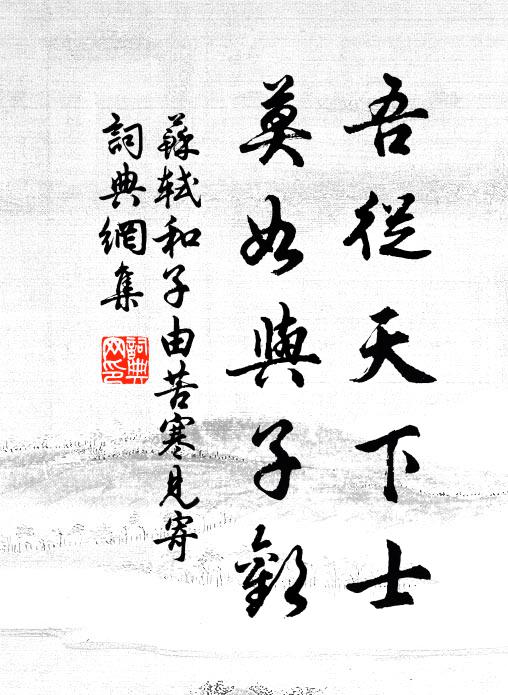 吾從天下士
莫如與子歡
蘇軾和子由苦寒見寄
詞典網集
詞典网印